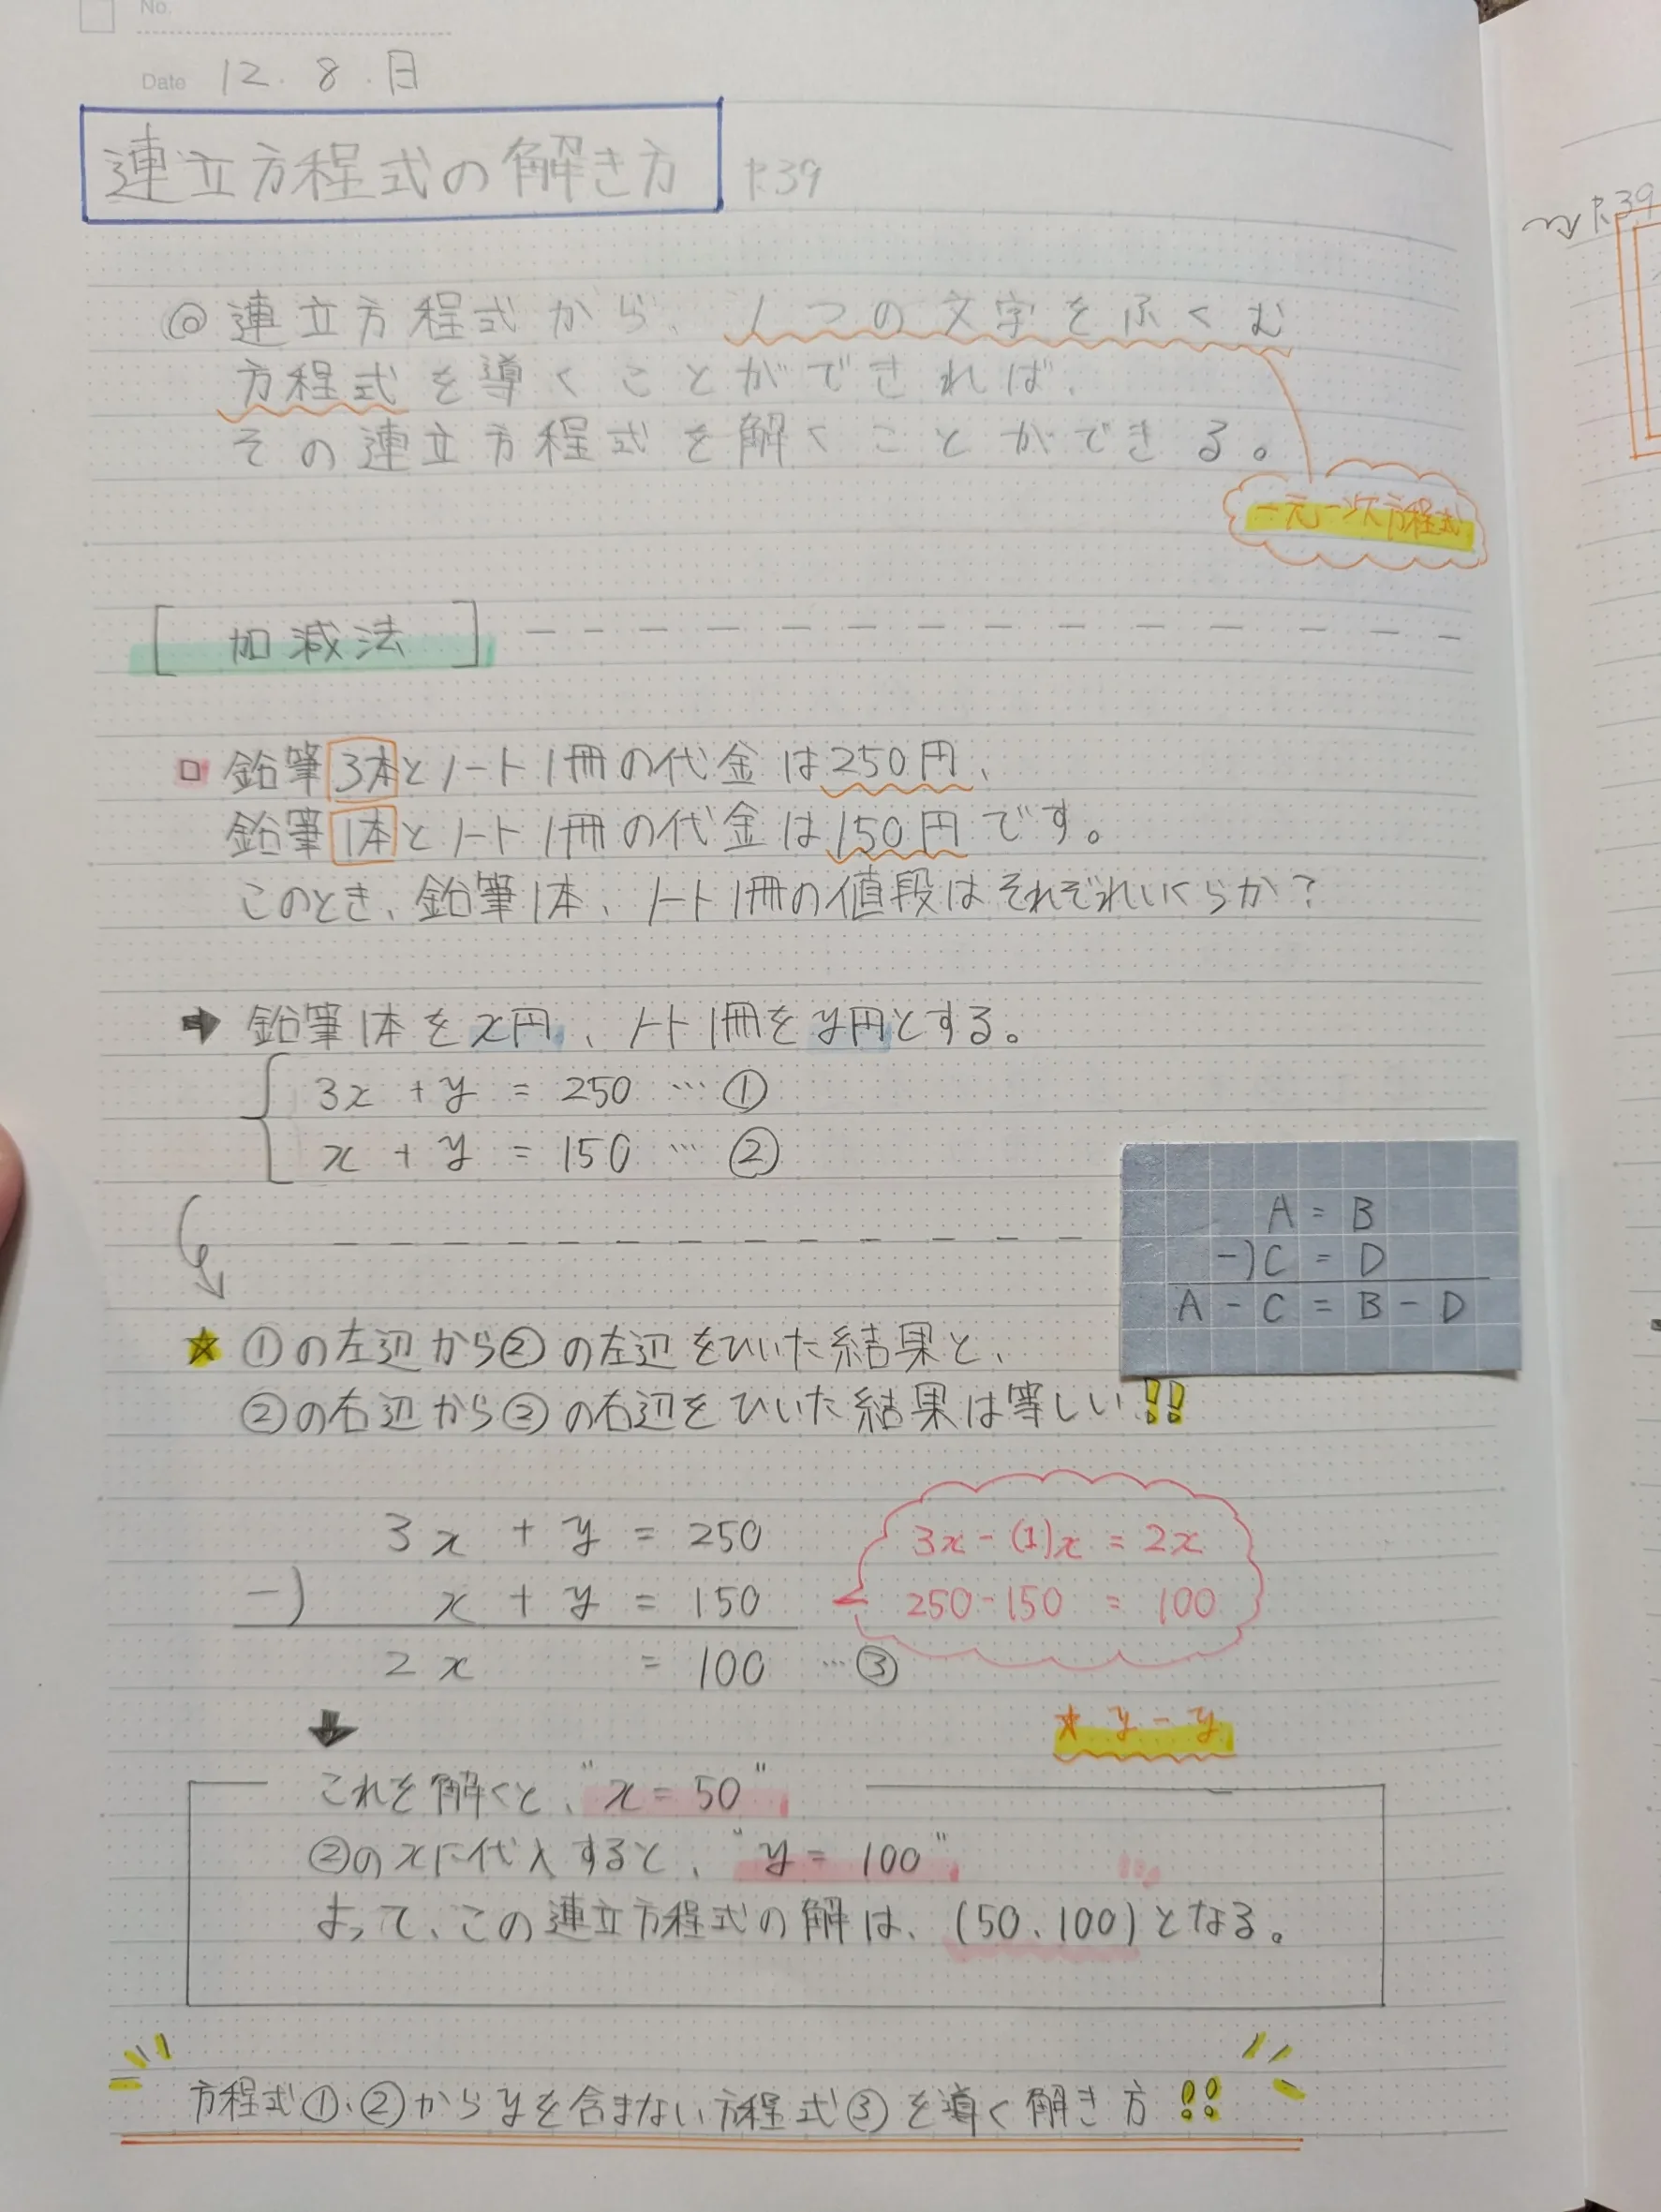 No.
Date 12.8.日
連立方程式の解き方 P.39
◎連立方程式から、1つの文字をふくむ
方程式を導くことができれば、
その連立方程式を解くことができる。
一元一次方程式
[加減法]
□ 鉛筆3本とノート1冊の代金は250円、
鉛筆1本とノート1冊の代金は150円です。
このとき、鉛筆1本、ノート1冊の値段はそれぞれいくらか?
➡ 鉛筆1本をx円、ノート1冊をy円とする。
3x + y = 250 … ①
x + y = 150 … ②
A = B
-)C = D
A - C = B - D
☆ ①の左辺から②の左辺をひいた結果と、
②の右辺から②の右辺をひいた結果は等しい!!
3x + y = 250
-) x + y = 150
2x = 100 … ③
3x - (1)x = 2x
250 - 150 = 100
★ y - y
これを解くと、"x = 50"
②のxに代入すると、"y = 100"
よって、この連立方程式の解は、(50、100)となる。
方程式①、②からyを含まない方程式③を導く解き方!!
P.39